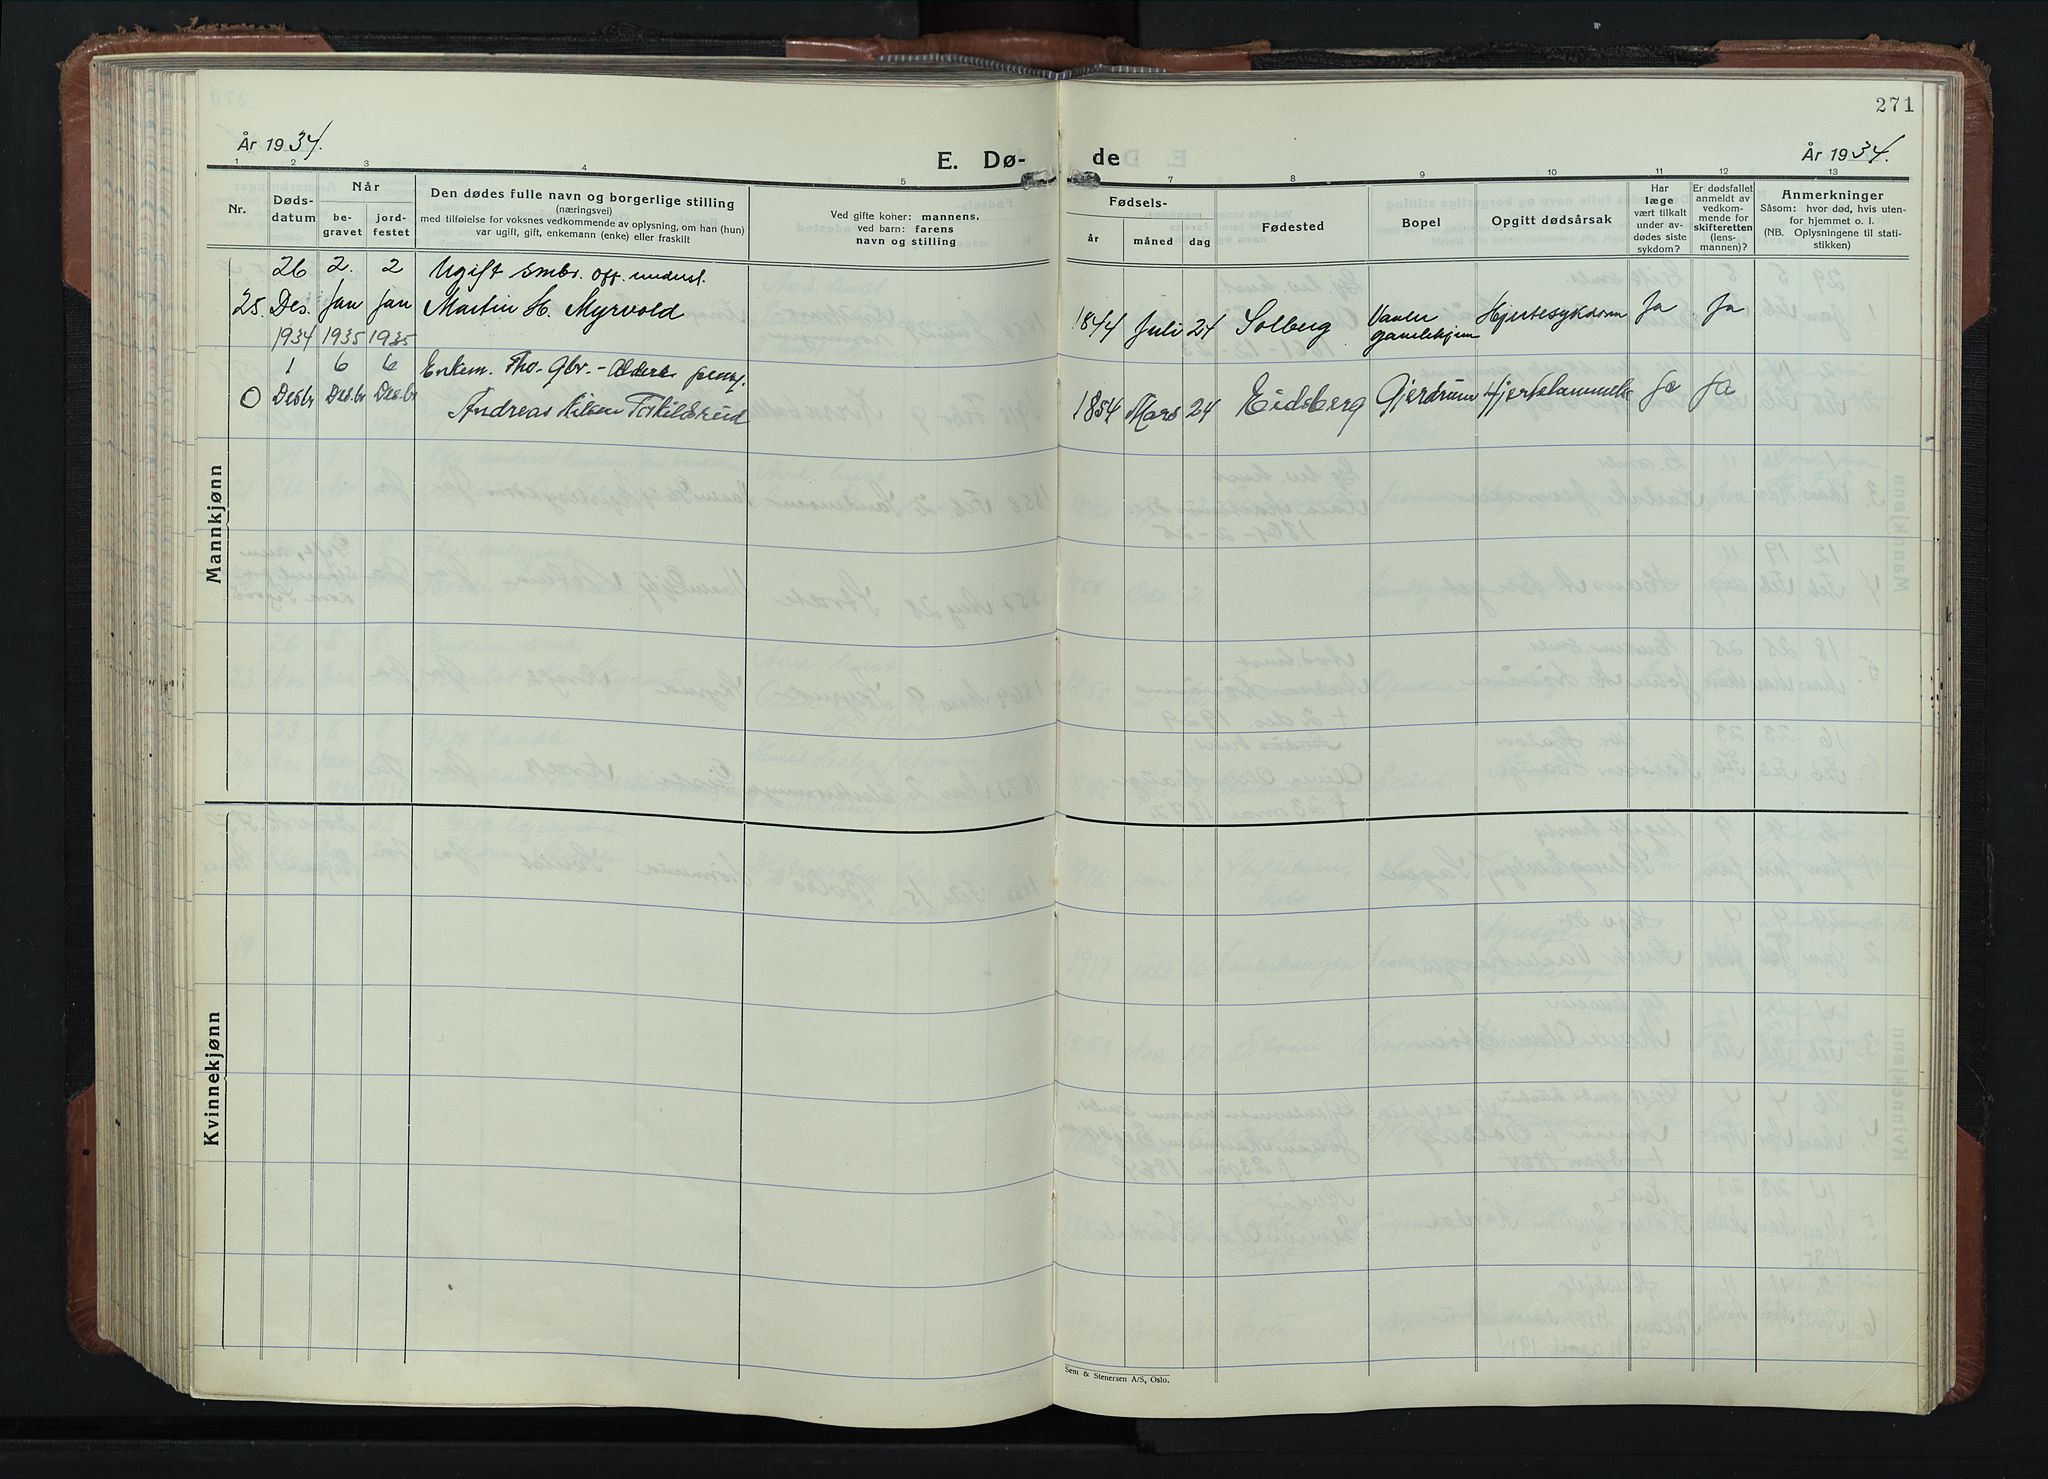 271
År 1934.
E. Dø-
de
År 1934.
1 2 3 4 5 7 8 9 10 11 12 13
Nr.
Døds-
datum
Når
be-
gravet
jord-
festet
Den dødes fulle navn og borgerlige stilling
(næringsvei)
med tilføielse for voksnes vedkommende av oplysning, om han (hun)
var ugift, gift, enkemann (enke) eller fraskilt
Ved gifte koner: mannens,
ved barn: farens
navn og stilling
Fødsels-
år måned dag
Fødested
Bopel
Opgitt dødsårsak
Har
læge
vært tilkalt
under av-
dødes siste
sykdom?
Er dødsfallet
anmeldt av
vedkom-
mende for
skifteretten
(lens-
mannen)?
Anmerkninger
Såsom: hvor død, hvis uten-
for hjemmet o. l.
(NB. Oplysningene til stati-
stikken)
Mannkjønn
26 2. 2 Ugift smbr. off. underst.
25. Des. Jan Jan Martin H. Myrvold 1844 Juli 24 Solberg Vaaler Hjertesykdom Ja Ja
1934 1935 1935 gamlehjem
1 6 6 Enkem. Fho. Gbr.
0 Desbr Des.br Des.br Andreas Nilsen Torkildsrud 1854 Mars 24 Eidsberg Gjerdrum Hjertelammelse Ja Ja
Kvinnekjønn
Sem & Stenersen A/S, Oslo.